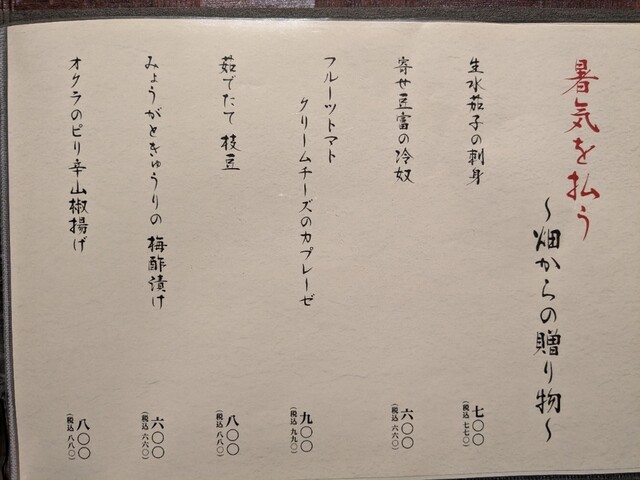 暑気を払う
～畑からの贈り物～
生水茄子の刺身
七〇〇
(税込 七七〇)
寄せ豆富の冷奴
六〇〇
(税込 六六〇)
フルーツトマト
クリームチーズのカプレーゼ
九〇〇
(税込 九九〇)
茹でたて 枝豆
八〇〇
(税込 八八〇)
みょうがときゅうりの 梅酢漬け
六〇〇
(税込 六六〇)
オクラのピリ辛山椒揚げ
八〇〇
(税込 八八〇)